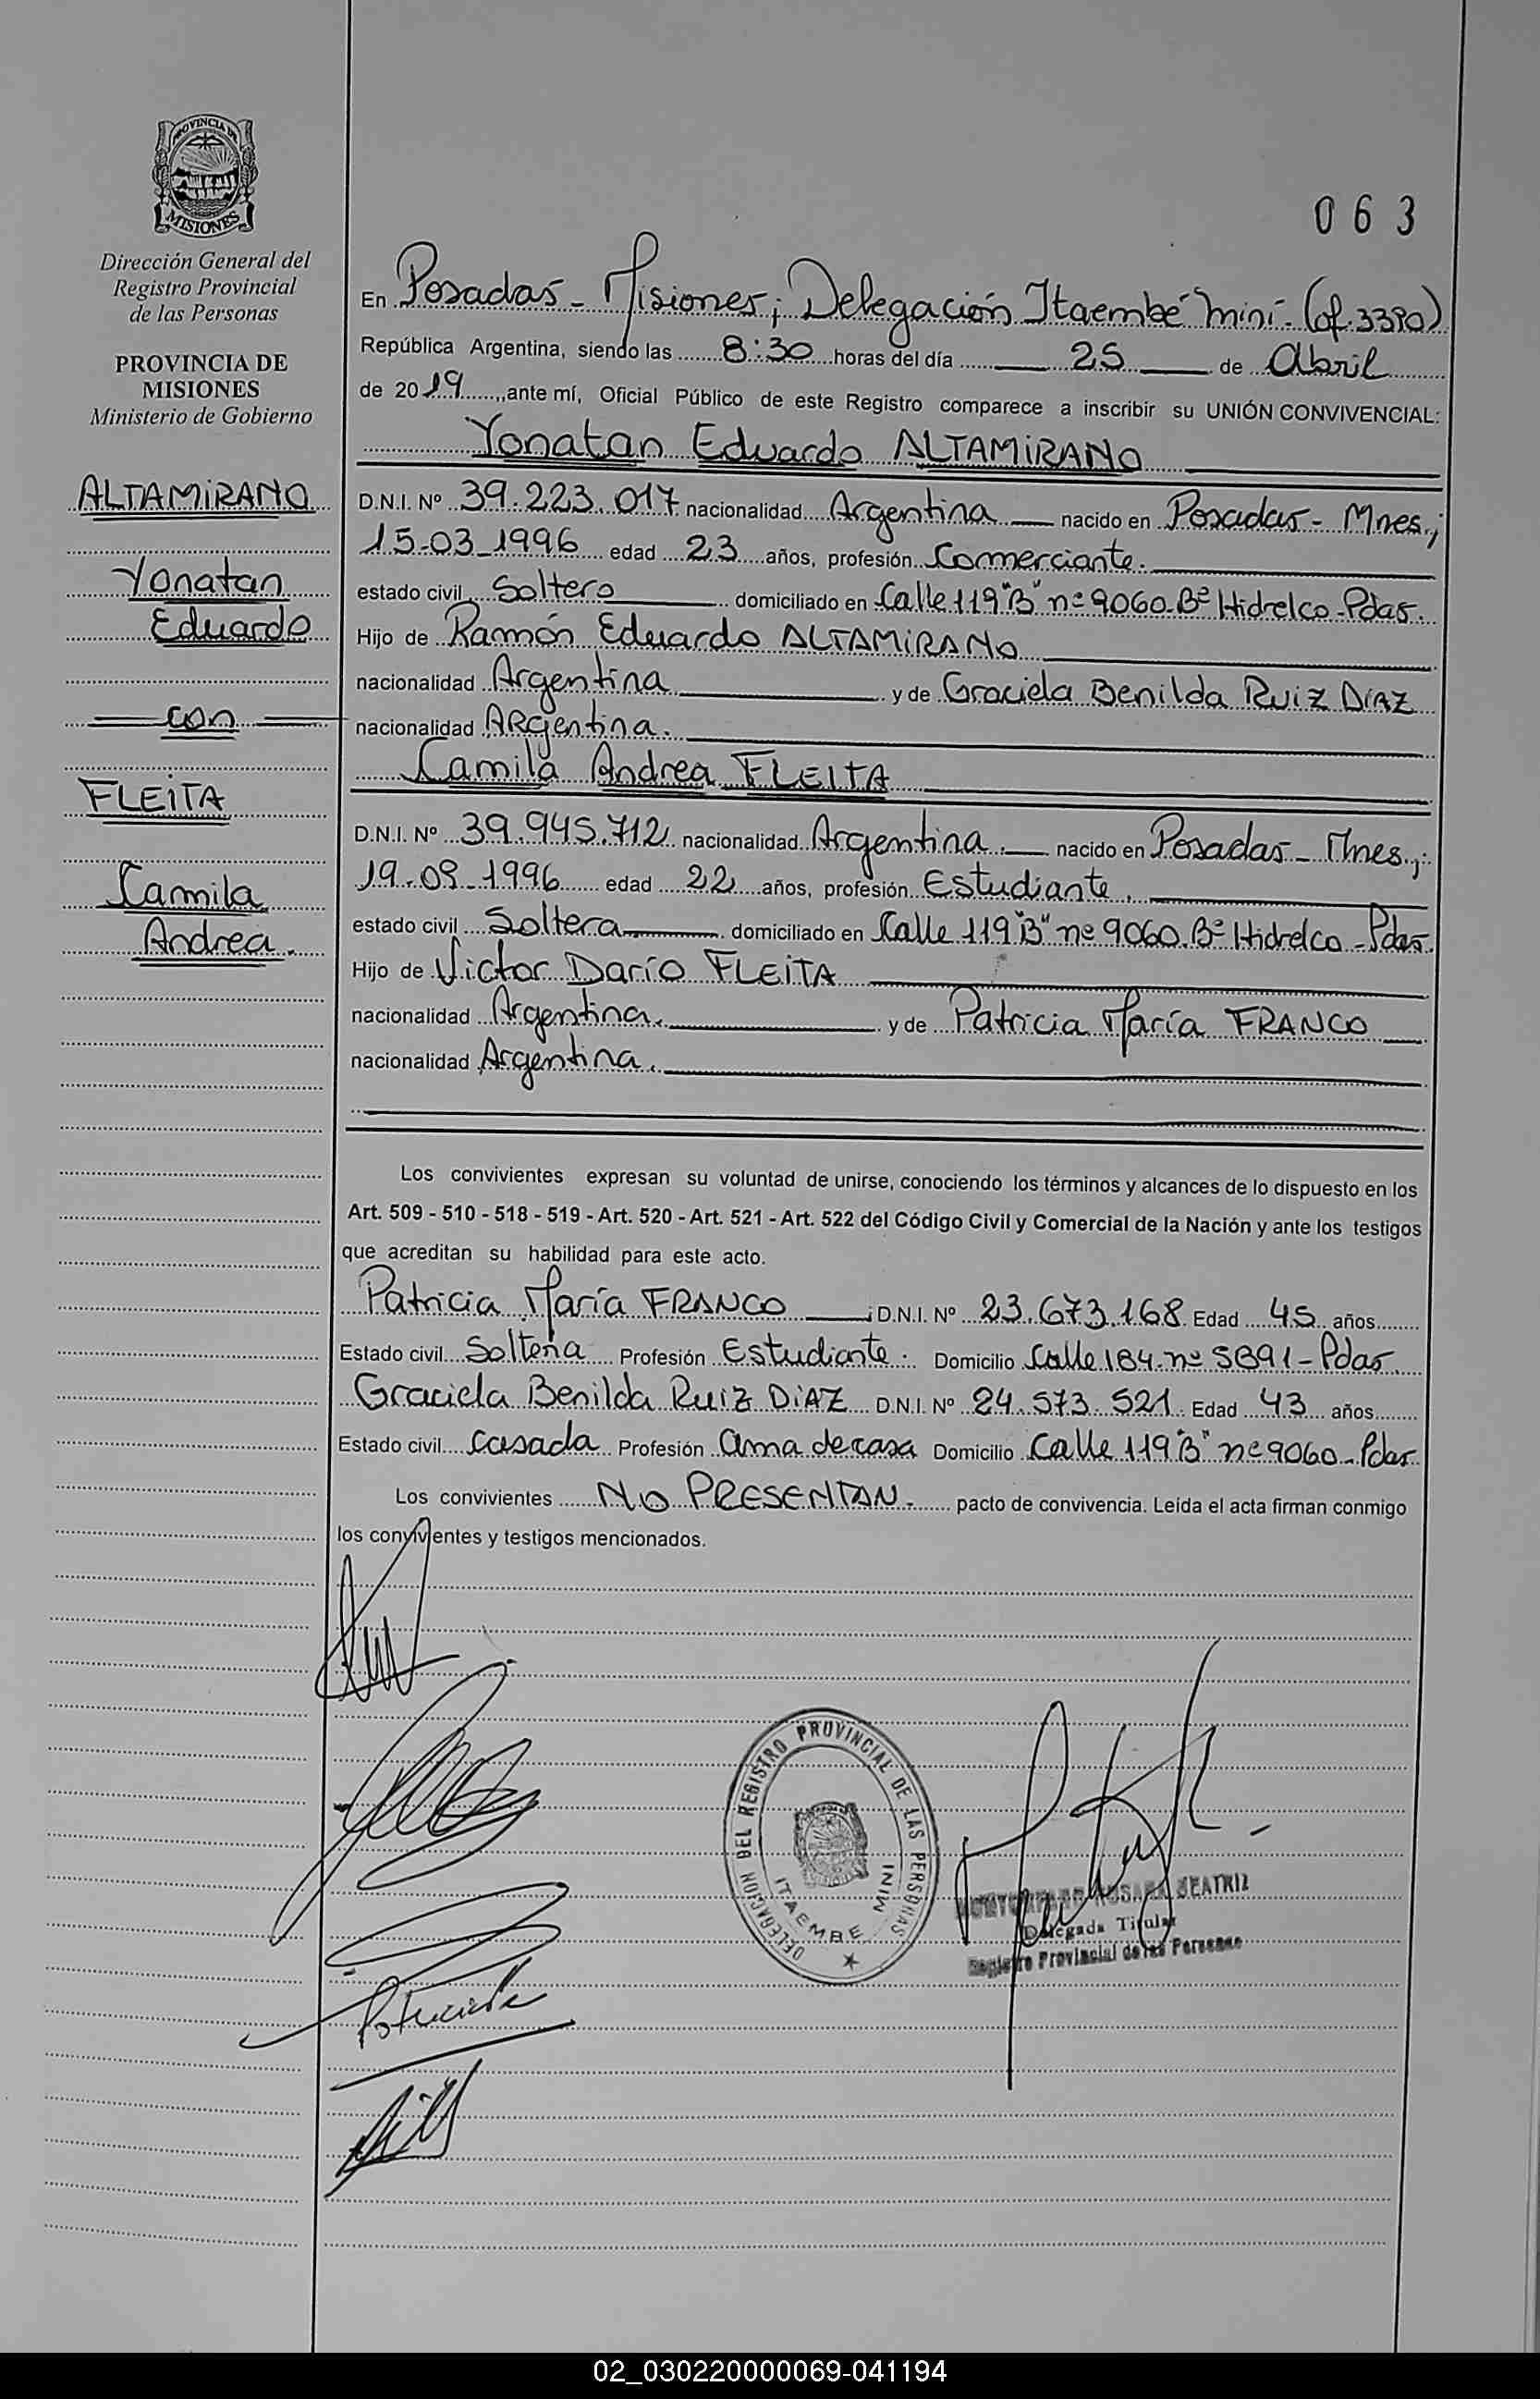 PROVINCIA DE
MISIONES
Dirección General del
Registro Provincial
de las Personas
PROVINCIA DE
MISIONES
Ministerio de Gobierno
ALTAMIRANO
Yonatan
Eduardo
con
FLEITA
Camila
Andrea.
063
En Posadas - Misiones; Delegación Itaembé Miní - (of. 3390)
República Argentina, siendo las 8:30 horas del día 25 de Abril
de 2019, ante mí, Oficial Público de este Registro comparece a inscribir su UNIÓN CONVIVENCIAL:
Yonatan Eduardo ALTAMIRANO
D.N.I. Nº 39.223.017 nacionalidad Argentina nacido en Posadas - Mnes.;
15-03-1996 edad 23 años, profesión Comerciante.
estado civil Soltero domiciliado en Calle 119 "B" nº 9060 - Bº Hidrelco - Pdas.
Hijo de Ramón Eduardo ALTAMIRANO
nacionalidad Argentina y de Graciela Benilda Ruiz DIAZ
nacionalidad Argentina.
Camila Andrea FLEITA
D.N.I. Nº 39.945.712 nacionalidad Argentina. nacido en Posadas - Mnes.;
19-09-1996 edad 22 años, profesión Estudiante.
estado civil Soltera domiciliado en Calle 119 "B" nº 9060. Bº Hidrelco - Pdas.
Hijo de Victor Darío FLEITA
nacionalidad Argentina. y de Patricia María FRANCO
nacionalidad Argentina.
Los convivientes expresan su voluntad de unirse, conociendo los términos y alcances de lo dispuesto en los
Art. 509 - 510 - 518 - 519 - Art. 520 - Art. 521 - Art. 522 del Código Civil y Comercial de la Nación y ante los testigos
que acreditan su habilidad para este acto.
Patricia María FRANCO ; D.N.I. Nº 23.673.168 Edad 45 años
Estado civil Soltera Profesión Estudiante. Domicilio Calle 184 - nº 5891 - Pdas.
Graciela Benilda Ruiz DIAZ D.N.I. Nº 24.573.521. Edad 43 años
Estado civil Casada Profesión ama de casa Domicilio Calle 119 "B" nº 9060 - Pdas.
Los convivientes NO PRESENTAN. pacto de convivencia. Leída el acta firman conmigo
los convivientes y testigos mencionados.
DELEGACION DEL REGISTRO PROVINCIAL DE LAS PERSONAS
ITAEMBE MINI
BEATRIZ
Delegada Titular
Registro Provincial de las Personas
02_030220000069-041194